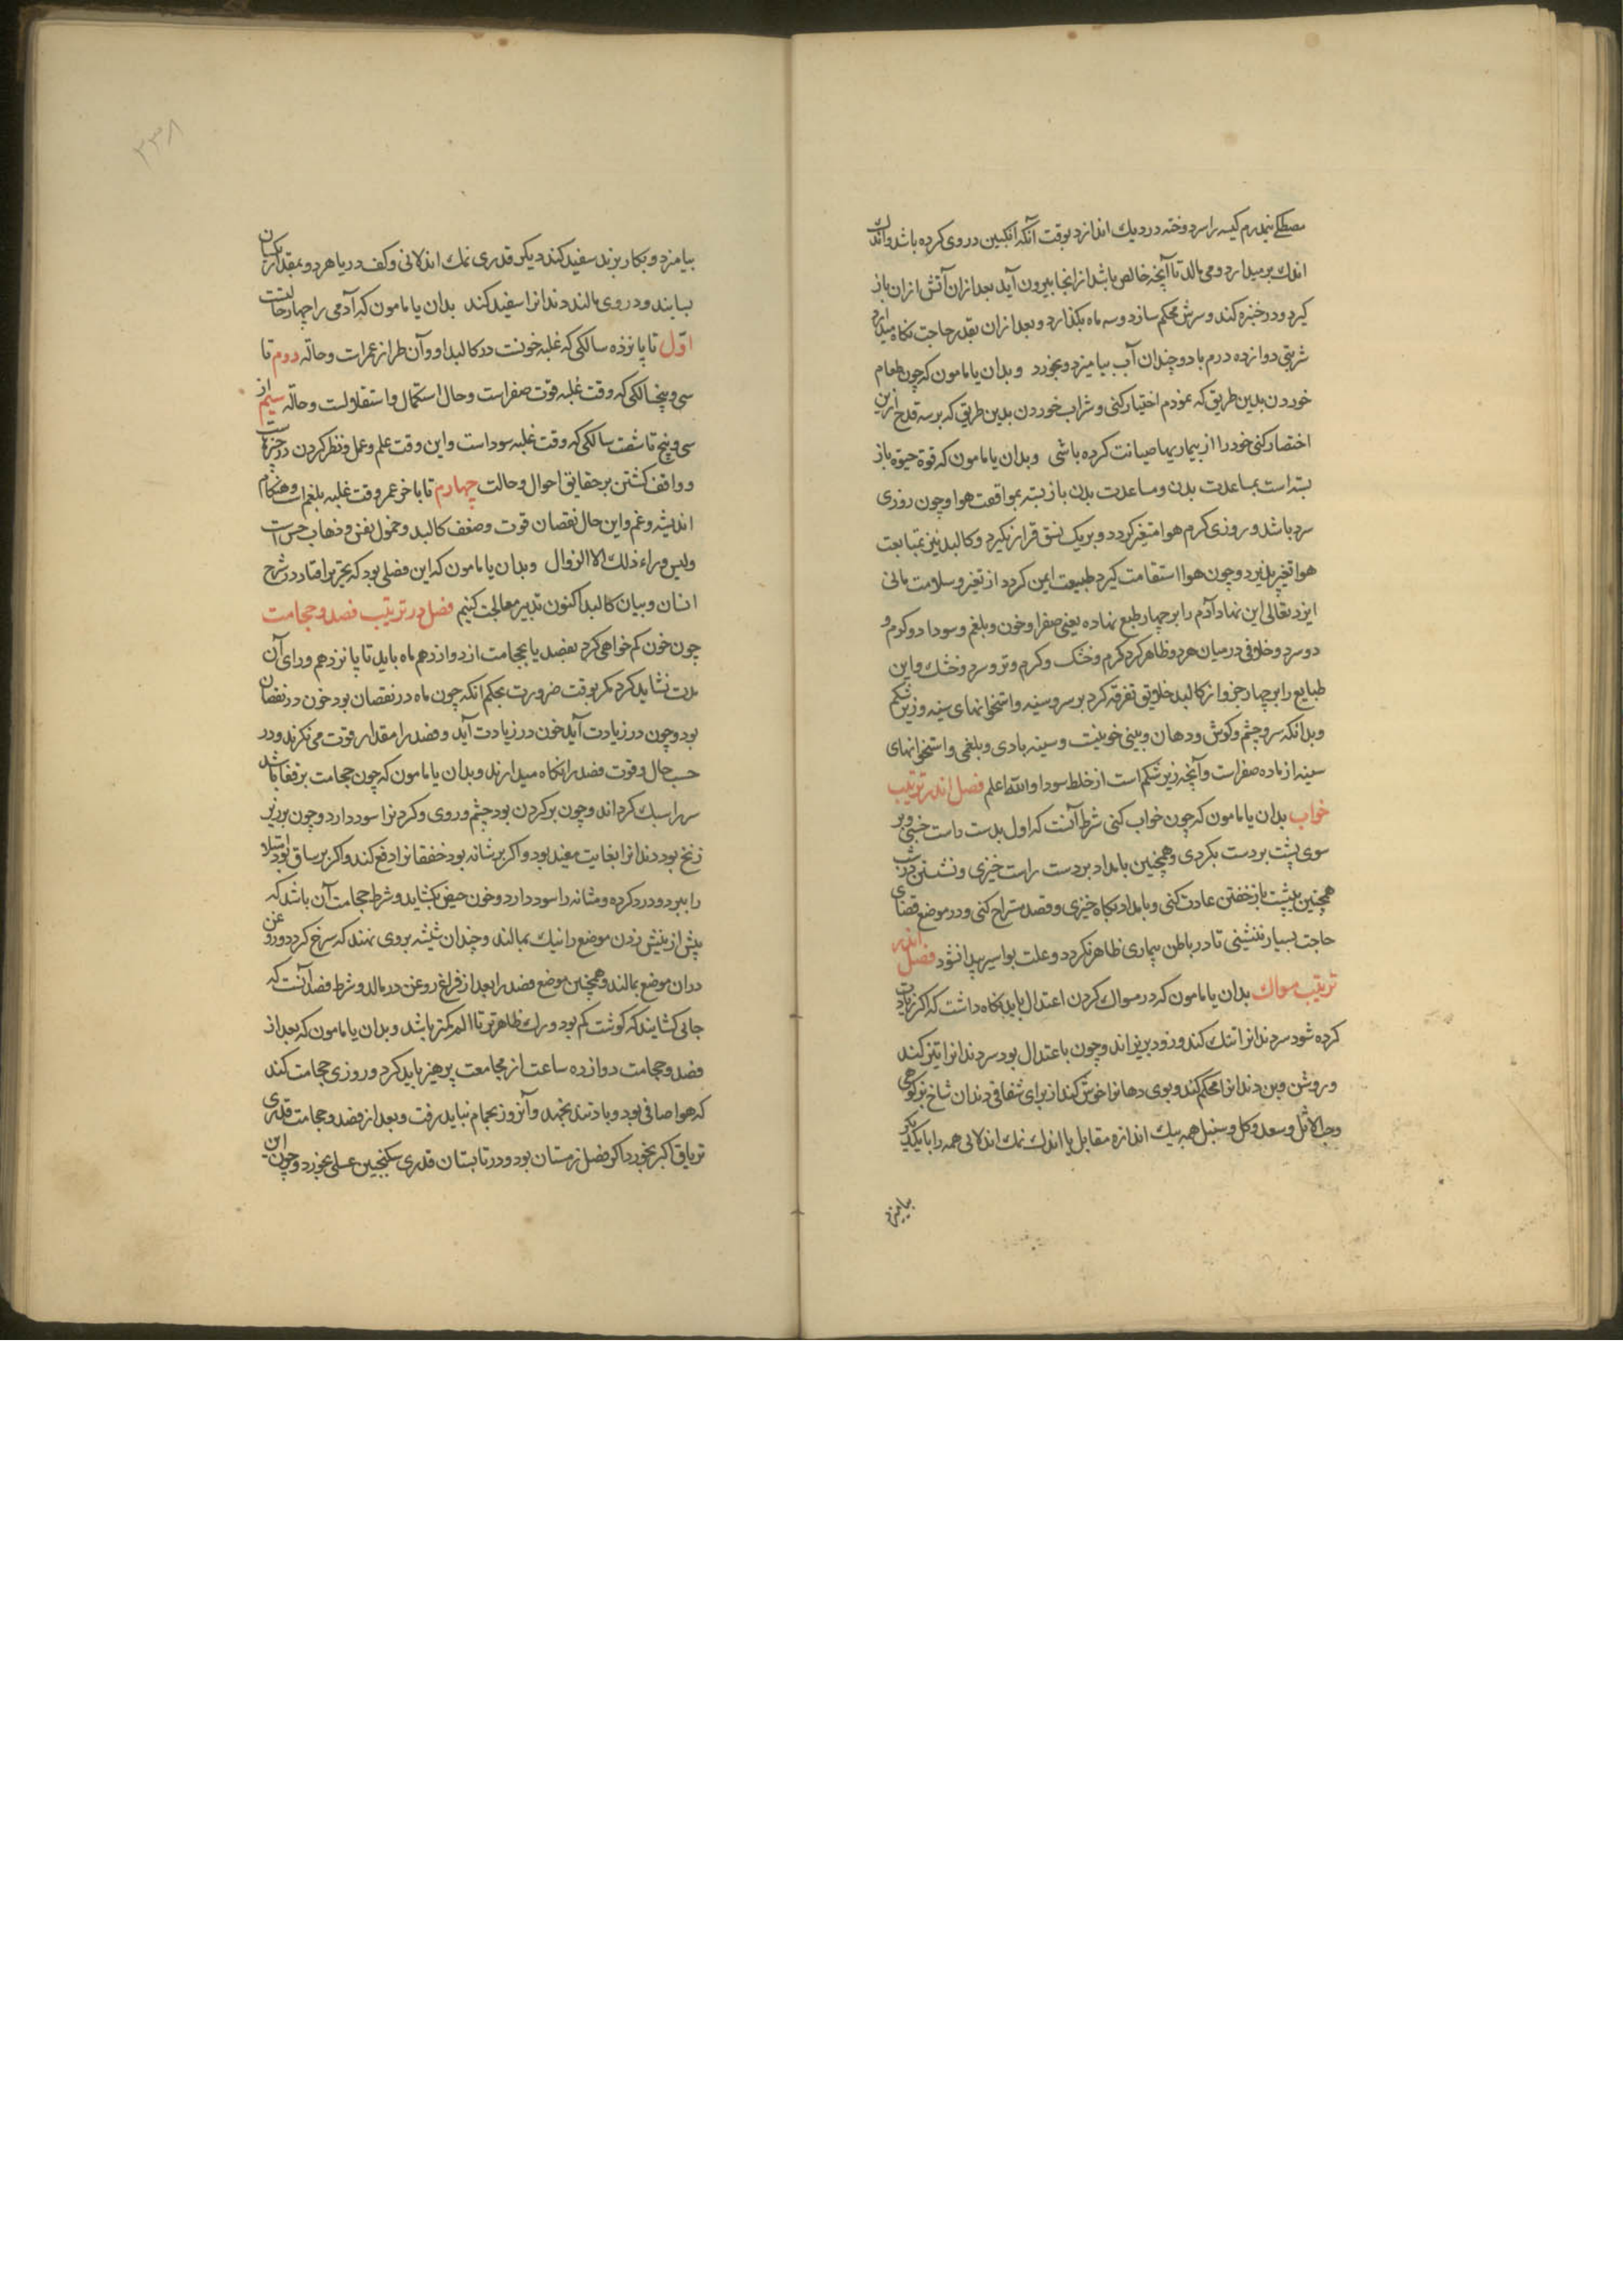 مصطکی نیمدرم کیسه را سردوخته در دیك اندازد بوقت آنکه انکبین در وی کرده باشد واندك
اندك بر میدارد و می مالد تا آنچه خالص باشد از انجا بیرون آید بعد ازان آتش ازان باز
کیرد ودر خنبره کند و سرش محکم سازد و سه ماه بکذارد و بعد ازان بقدر حاجت نکاه میدارد
شربتی دوازده درم با دو چندان آب بیامیزد و بخورد وبدان یا مامون که چون طعام
خوردن بدین طریق که نمودم اختیار کنی و شراب خوردن بدین طریق که بر سه قدح ازین
اختصار کنی خود را از بیماریها صیانت کرده باشی وبدان یا مامون که قوة حیوة باز
بسته است بمساعدت بدن و مساعدت بدن باز بسته بموافقت هوا و چون روزی
سرد باشد و روزی کرم هوا متغیر کردد و بر یک نسق قرار نکیرد و کالبد نیز بمتابعت
هوا تغیر پذیرد و چون هوا استقامت کیرد طبیعت ایمن کردد از تغیر و سلامت مانی
ایزد تعالی این نهاد آدم را بر چهار طبع نهاده یعنی صفرا و خون و بلغم و سودا دو کرم و
دو سرد و خلافی در میان هر دو ظاهر کرد کرم و خشک و کرم و تر و سرد و خشك و این
طبایع را بر چهار جزو از کالبد خلایق تفرقه کرد بر سر و سینه و استخوانهای سینه و زیر شکم
وبدانکه سر و چشم و کوش و دهان و بینی خونیست و سینه بادی و بلغمی و استخوانهای
سینه از ماده صفراست و آنچه زیر شکم است از خلط سودا والله اعلم فصل اندر ترتیب
خواب بدان یا مامون که چون خواب کنی شرط آنست که اول بدست راست خسبی و بر
سوی پشت بر دست بکردی و همچنین بامداد بر دست راست خیزی و نشستن در شب
همچنین بپشت باز خفتن عادت کنی و بامداد بکاه خیزی و قصد مستراح کنی و در موضع قضای
حاجت بسیار ننشینی تا در باطن بیماری ظاهر نکردد و علت بواسیر پیدا نشود فصل اندر
ترتیب مسواك بدان یا مامون که در مسواك کردن اعتدال باید نکاه داشت که اکر زیادت
کرده شود سر دندانرا تنك کند و زود بریزاند و چون باعتدال بود سر دندانرا تیز کند
و روشن و بن دندانرا محکم کند و بوی دهانرا خوش کند از برای شقاقی دندان شاخ بز کوهی
وحب الاثل و سعد و کل و سنبل همه بیك اندازه مقابل با اندك نمك اندلانی همه را با یکدیکر
بیامیزد
۲۳۸
بیامیزد و بکار برند سفید کند دیکر قدری نمك اندلانی و کف دریا هر دو بمقدار یکسان
بسایند و در وی مالند دندانرا سفید کند بدان یا مامون که آدمی را چهار حالتست
اوّل تا پانزده سالکی که غلبه خونست در کالبد او و آن طراز عمر است و حاله دوم تا
سی و پنج سالکی که وقت غلبه قوت صفراست و حال استکمال و استقلالست و حاله سیم از
سی و پنج تا شصت سالکی که وقت غلبه سوداست و این وقت علم و عمل و نظر کردن در چیزهاست
و واقف کشتن بر حقایق احوال و حالت چهارم تا باخر عمر وقت غلبه بلغم است و هنکام
اندیشه و غم و این حال نقصان قوت و ضعف کالبد و خمول نفس و ذهاب حس است
ولیس وراء ذلك الا الزوال وبدان یا مامون که این فصلی بود که بتحریر افتاد در شرح
انسان و بیان کالبد اکنون تدبیر معالجت کنیم فصل در ترتیب فصد و حجامت
چون خون کم خواهی کرد بفصد یا بحجامت از دوازدهم ماه باید تا پانزدهم ورای آن
مدت نشاید کرد مکر بوقت ضرورت بحکم انکه چون ماه در نقصان بود خون در نقصان
بود و چون در زیادت آید خون در زیادت آید و فصد را مقدار قوت می نکرند و در
حسب حال و قوت فصد را نکاه میدارند وبدان یا مامون که چون حجامت بر قفا باشد
سر را سبك کرداند و چون بر کردن بود چشم و روی و کردنرا سود دارد و چون بر زیر
زنخ بود دندانرا بغایت مفید بود و اکر بر شانه بود خفقانرا دفع کند و اکر بر ساق بود امتلا
را ببرد و درد کرده و مثانه را سود دارد و خون حیض بکشاید و شرط حجامت آن باشد که
پیش از نیش زدن موضع را نیك بمالند و چندان شیشه بر وی نهند که سرخ کردد و روغن
دران موضع بمالند و همچنین موضع فصد را بعد از فراغ روغن در مالد و شرط فصد آنست که
جایی کشایند که کوشت کم بود و رك ظاهرتر تا الم کمتر باشد وبدان یا مامون که بعد از
فصد و حجامت دوازده ساعت از مجامعت پرهیز باید کرد و روزی حجامت کند
که هوا صافی بود و باد تند نجهد و آنروز بحمام نباید رفت و بعد از فصد و حجامت قدری
تریاق اکبر بخورد اکر فصل زمستان بود و در تابستان قدری سکنجبین عسلی بخورد و چون این